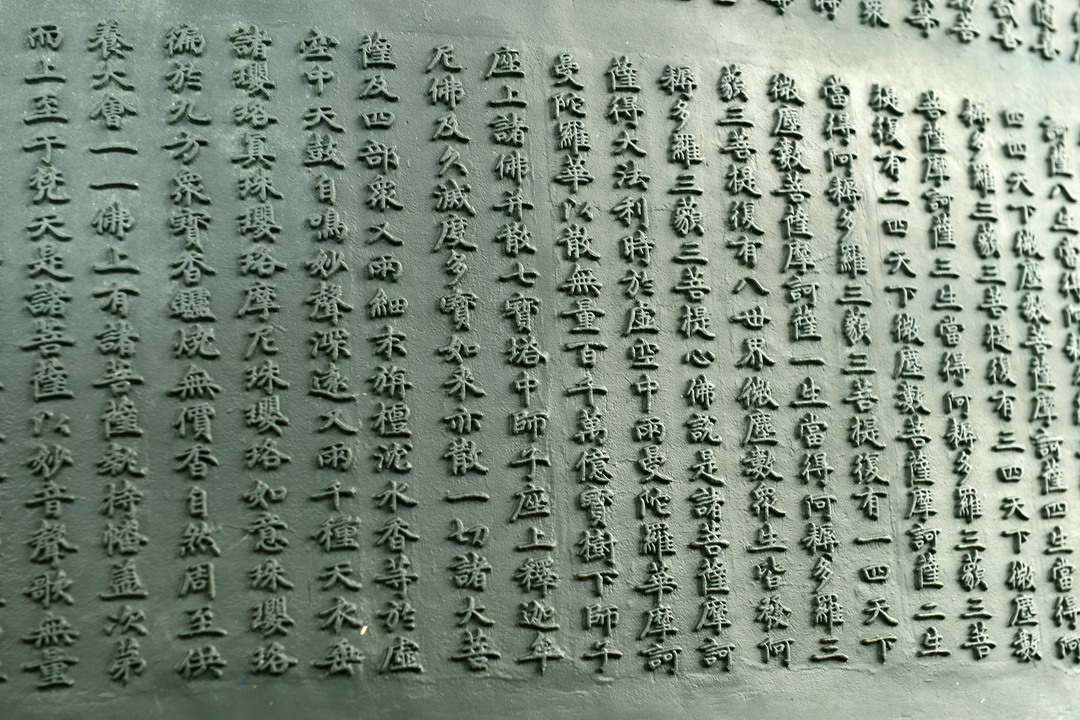 訶薩八生當得阿
四四天下微塵數菩薩摩訶薩四生當得阿
耨多羅三藐三菩提復有三四天下微塵數
菩薩摩訶薩三生當得阿耨多羅三藐三菩
提復有二四天下微塵數菩薩摩訶薩二生
當得阿耨多羅三藐三菩提復有一四天下
微塵數菩薩摩訶薩一生當得阿耨多羅三
藐三菩提復有八世界微塵數眾生皆發阿
耨多羅三藐三菩提心佛說是諸菩薩摩訶
薩得大法利時於虛空中雨曼陀羅華摩訶
曼陀羅華以散無量百千萬億寶樹下師子
座上諸佛并散七寶塔中師子座上釋迦牟
尼佛及久滅度多寶如來亦散一切諸大菩
薩及四部眾又雨細末旃檀沈水香等於虛
空中天鼓自鳴妙聲深遠又雨千種天衣垂
諸瓔珞真珠瓔珞摩尼珠瓔珞如意珠瓔珞
徧於九方眾寶香爐燒無價香自然周至供
養大會一一佛上有諸菩薩執持幡蓋次第
而上至于梵天是諸菩薩以妙音聲歌無量